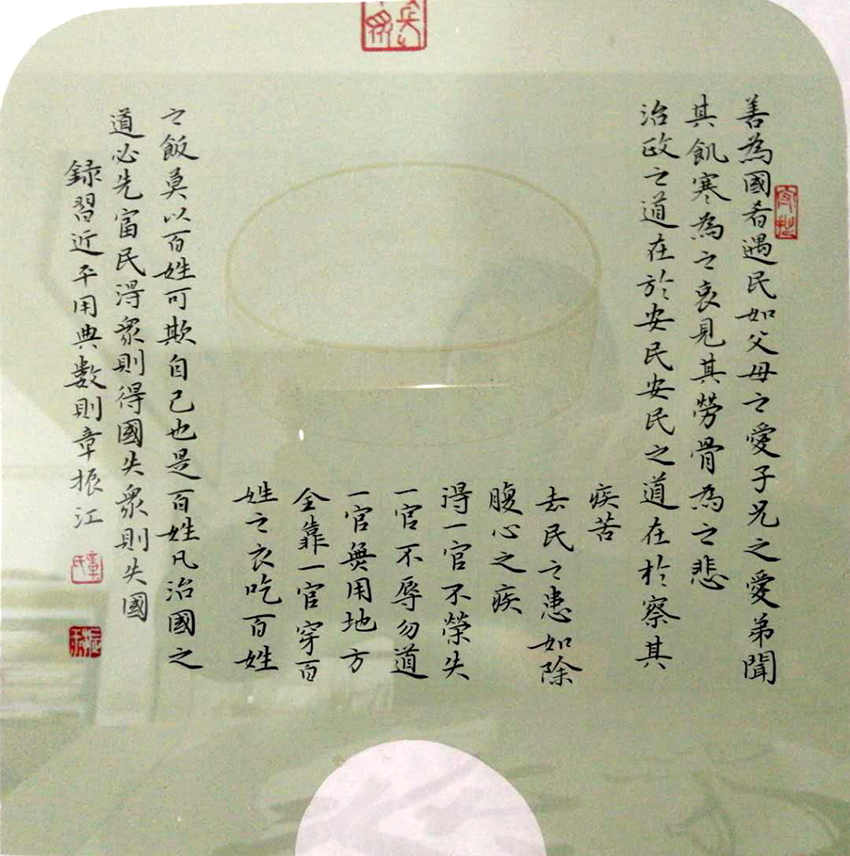 善為國者遇民如父母之愛子兄之愛弟聞
其飢寒為之哀見其勞骨為之悲
治政之道在於安民安民之道在於察其
疾苦
去民之患如除
腹心之疾
得一官不榮失
一官不辱勿道
一官無用地方
全靠一官穿百
姓之衣吃百姓
之飯莫以百姓可欺自己也是百姓凡治國之
道必先富民得眾則得國失眾則失國
錄習近平用典數則章振江